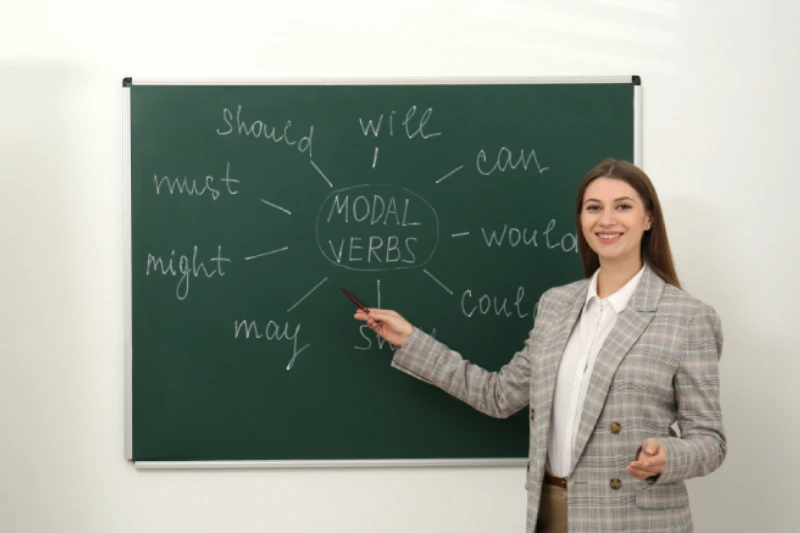 should
will
can
must
MODAL
VERBS
would
might
could
may